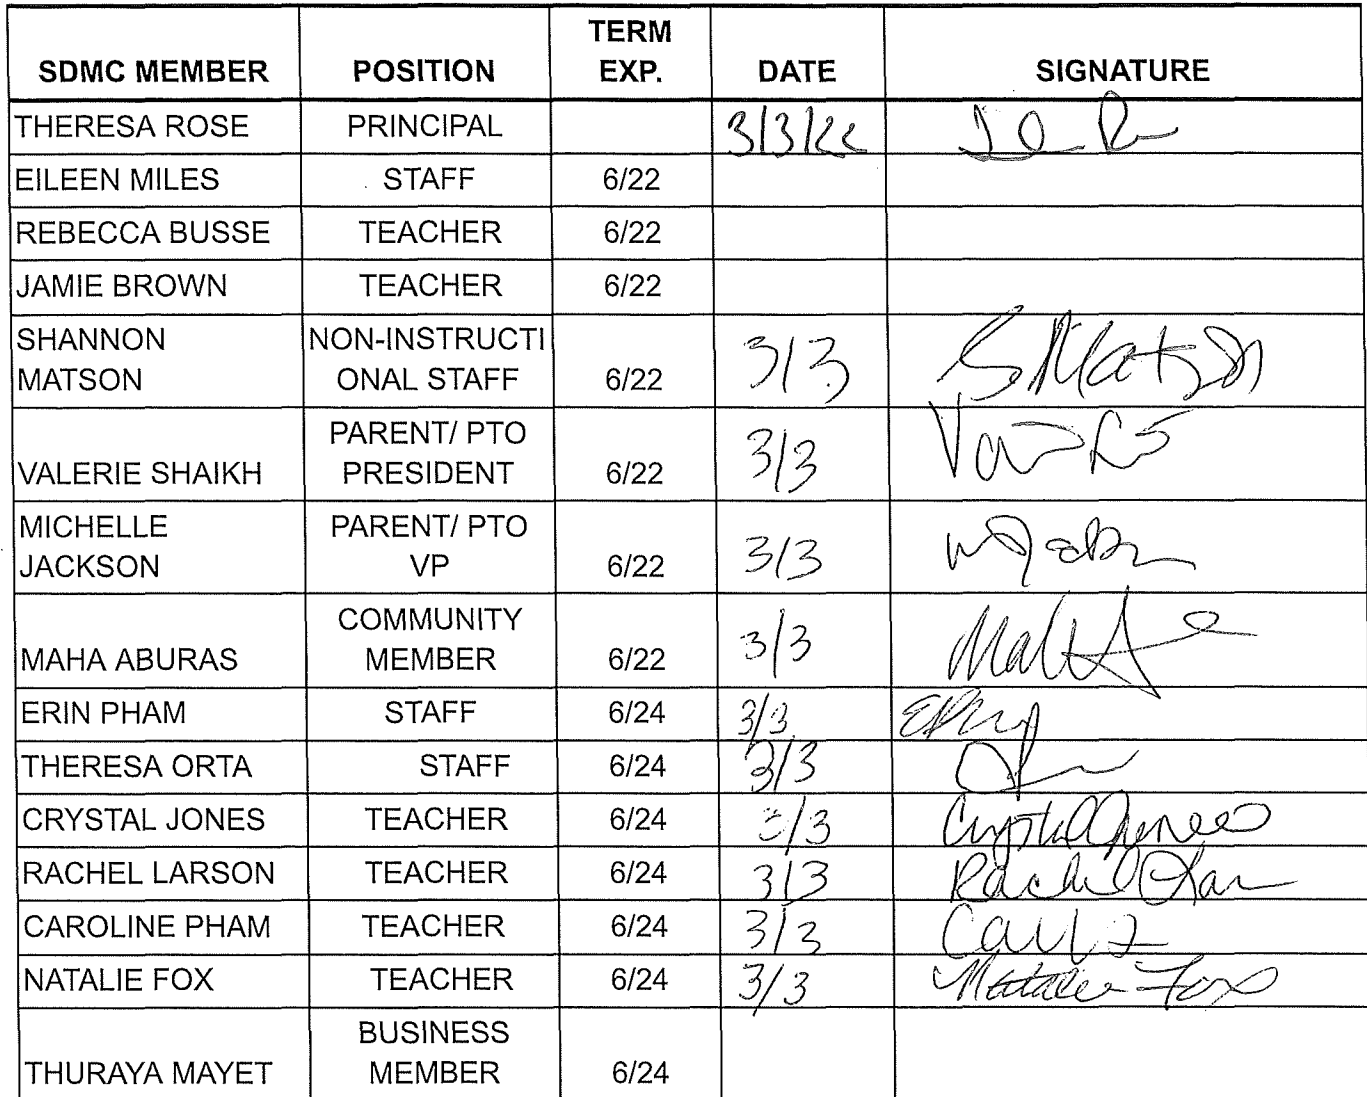 SDMC MEMBER POSITION TERM EXP. DATE SIGNATURE
THERESA ROSE PRINCIPAL 3/3/22
EILEEN MILES STAFF 6/22
REBECCA BUSSE TEACHER 6/22
JAMIE BROWN TEACHER 6/22
SHANNON NON-INSTRUCTI
MATSON ONAL STAFF 6/22 3/3 S. Matson
PARENT/ PTO
VALERIE SHAIKH PRESIDENT 6/22 3/3
MICHELLE PARENT/ PTO
JACKSON VP 6/22 3/3
COMMUNITY
MAHA ABURAS MEMBER 6/22 3/3
ERIN PHAM STAFF 6/24 3/3
THERESA ORTA STAFF 6/24 3/3
CRYSTAL JONES TEACHER 6/24 3/3 Crystal Jones
RACHEL LARSON TEACHER 6/24 3/3 Rachel
CAROLINE PHAM TEACHER 6/24 3/3
NATALIE FOX TEACHER 6/24 3/3 Natalie Fox
BUSINESS
THURAYA MAYET MEMBER 6/24